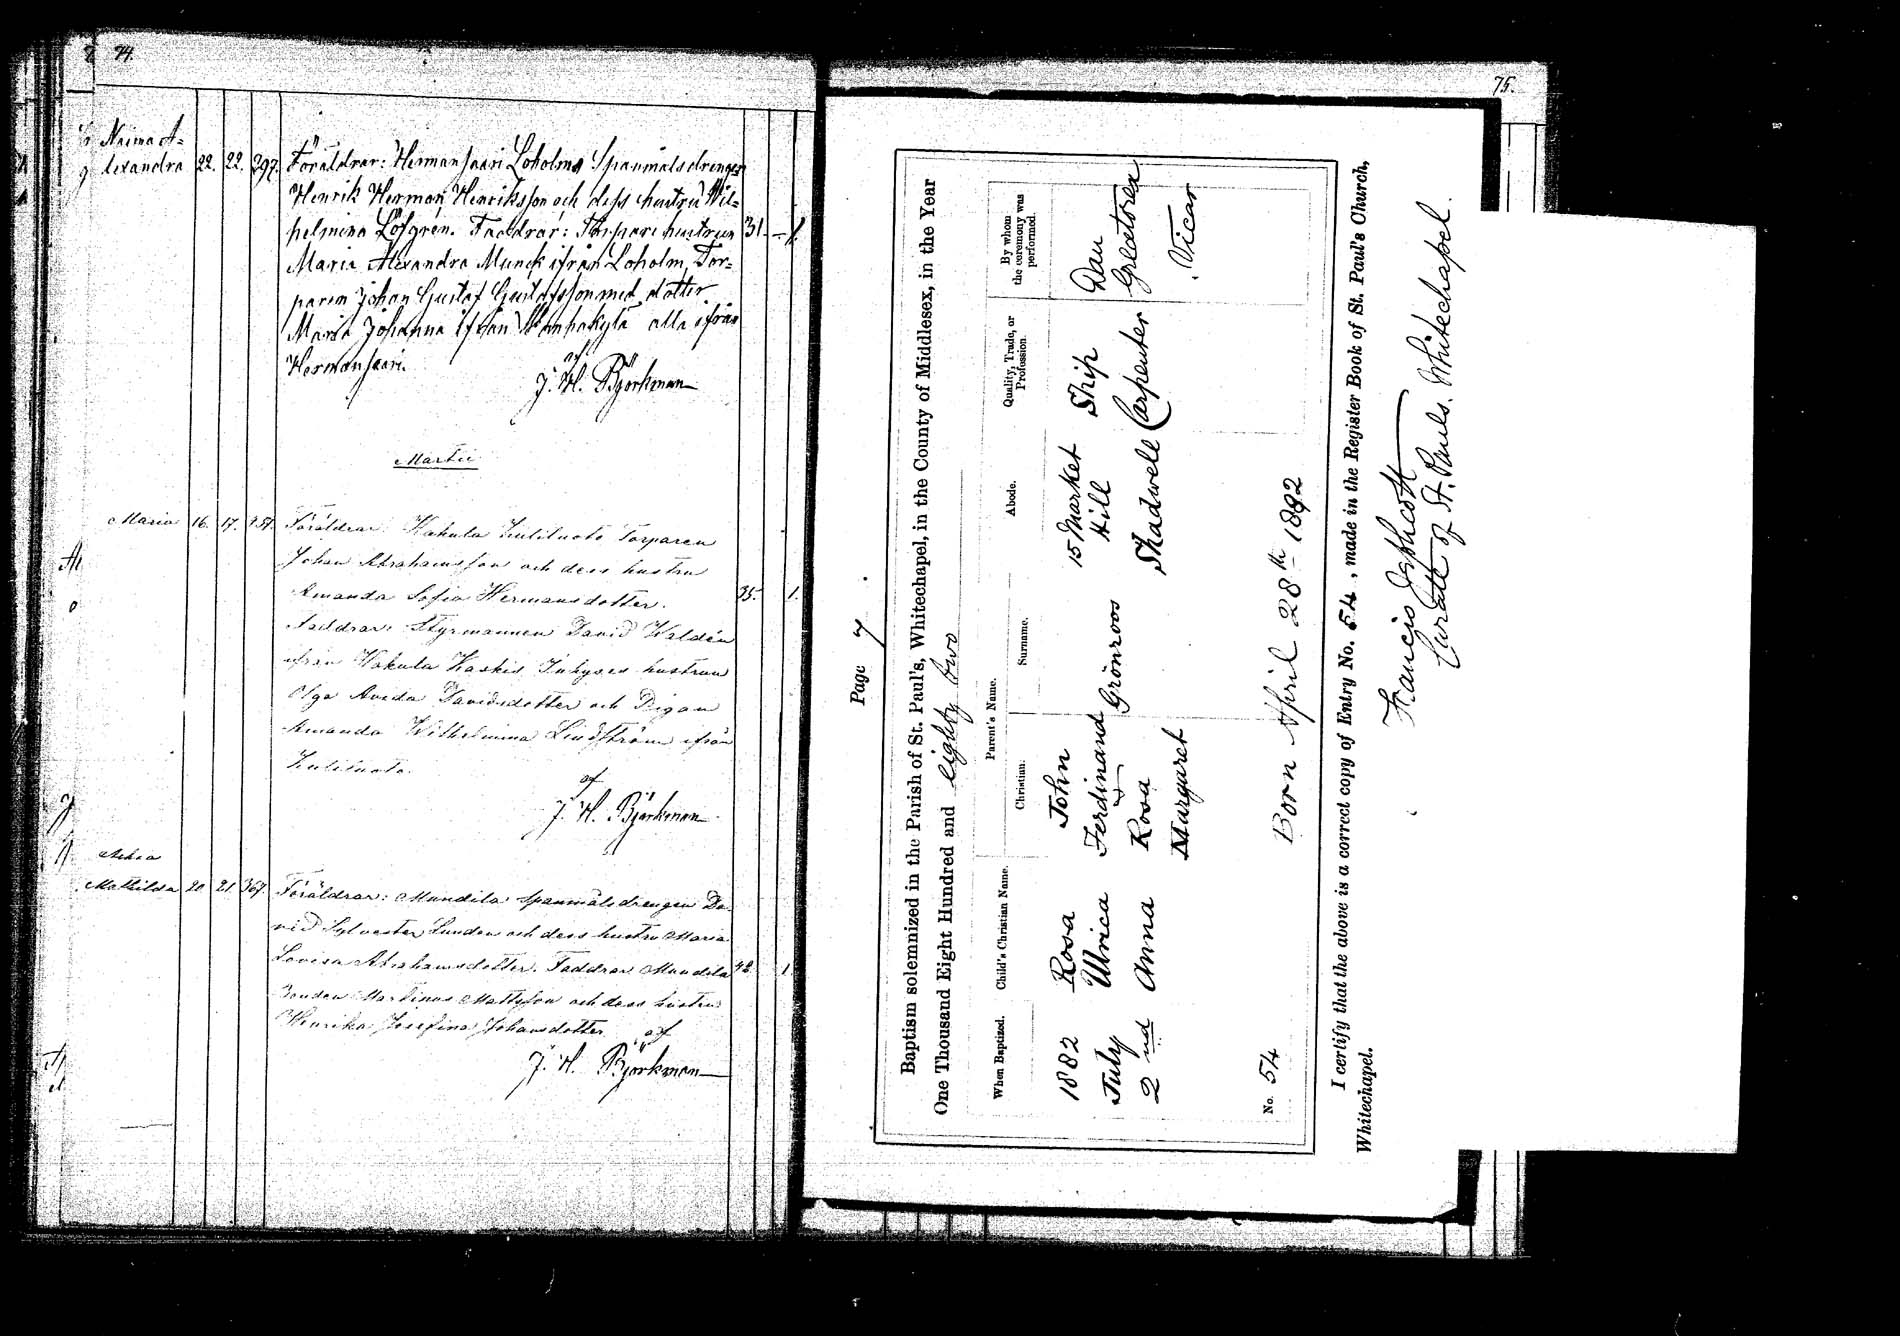 74.
Naima A-
lexandra 22. 22. 297. Föräldrar: Hermansaari Loholms Spanmålsdrengen
Henrik Herman Henriksson och dess hustru Wil=
helmina Löfgrén. Faddrar: Torpare hustrun 31. – 1.
Maria Alexandra Munck ifrån Loholm, Tor=
paren Johan Gustaf Gustafsson med dotter
Maria Johanna ifrån alla ifrån
Hermansaari.
af
J. H. Björkman
Martii
Maria 16. 17. Föräldrar: Kakula Torparen
Johan Abrahamsson och dess hustru
Amanda Sofia Hermansdotter. 35. 1.
Faddrar: Styrmannen David Waldén
ifrån Kakula Kaskis Inhyses hustrun
Olga Davidsdotter och Pigan
Amanda Wilhelmina Lindström ifrån
af
J. H. Björkman
Mathilda 20 21 367. Föräldrar: Mundila Spanmålsdrengen Da-
vid Sylvester Lunden och dess hustru Maria
Lovisa Abrahamsdotter. Faddrar Mundila 42. 1
Bonden Martinus Mattsson och dess hustru
Henrika Josefina Johansdotter
af
J. H. Björkman
75.
Page 7
Baptism solemnized in the Parish of St. Paul's, Whitechapel, in the County of Middlesex, in the Year
One Thousand Eight Hundred and eighty two
When Baptized. Child's Christian Name. Parent's Name. Abode. Quality, Trade, or Profession. By whom the ceremony was performed.
Christian. Surname.
1882 Rosa John 15 Market Ship Dan
July Ulrica Ferdinand Grönroos Hill Carpenter Greatorex
2nd Anna & Rosa Shadwell Vicar
Margaret
No. 54 Born April 28th 1882
I certify that the above is a correct copy of Entry No. 54, made in the Register Book of St. Paul's Church,
Whitechapel.
Francis Jephcott
Curate of St. Pauls. Whitechapel.